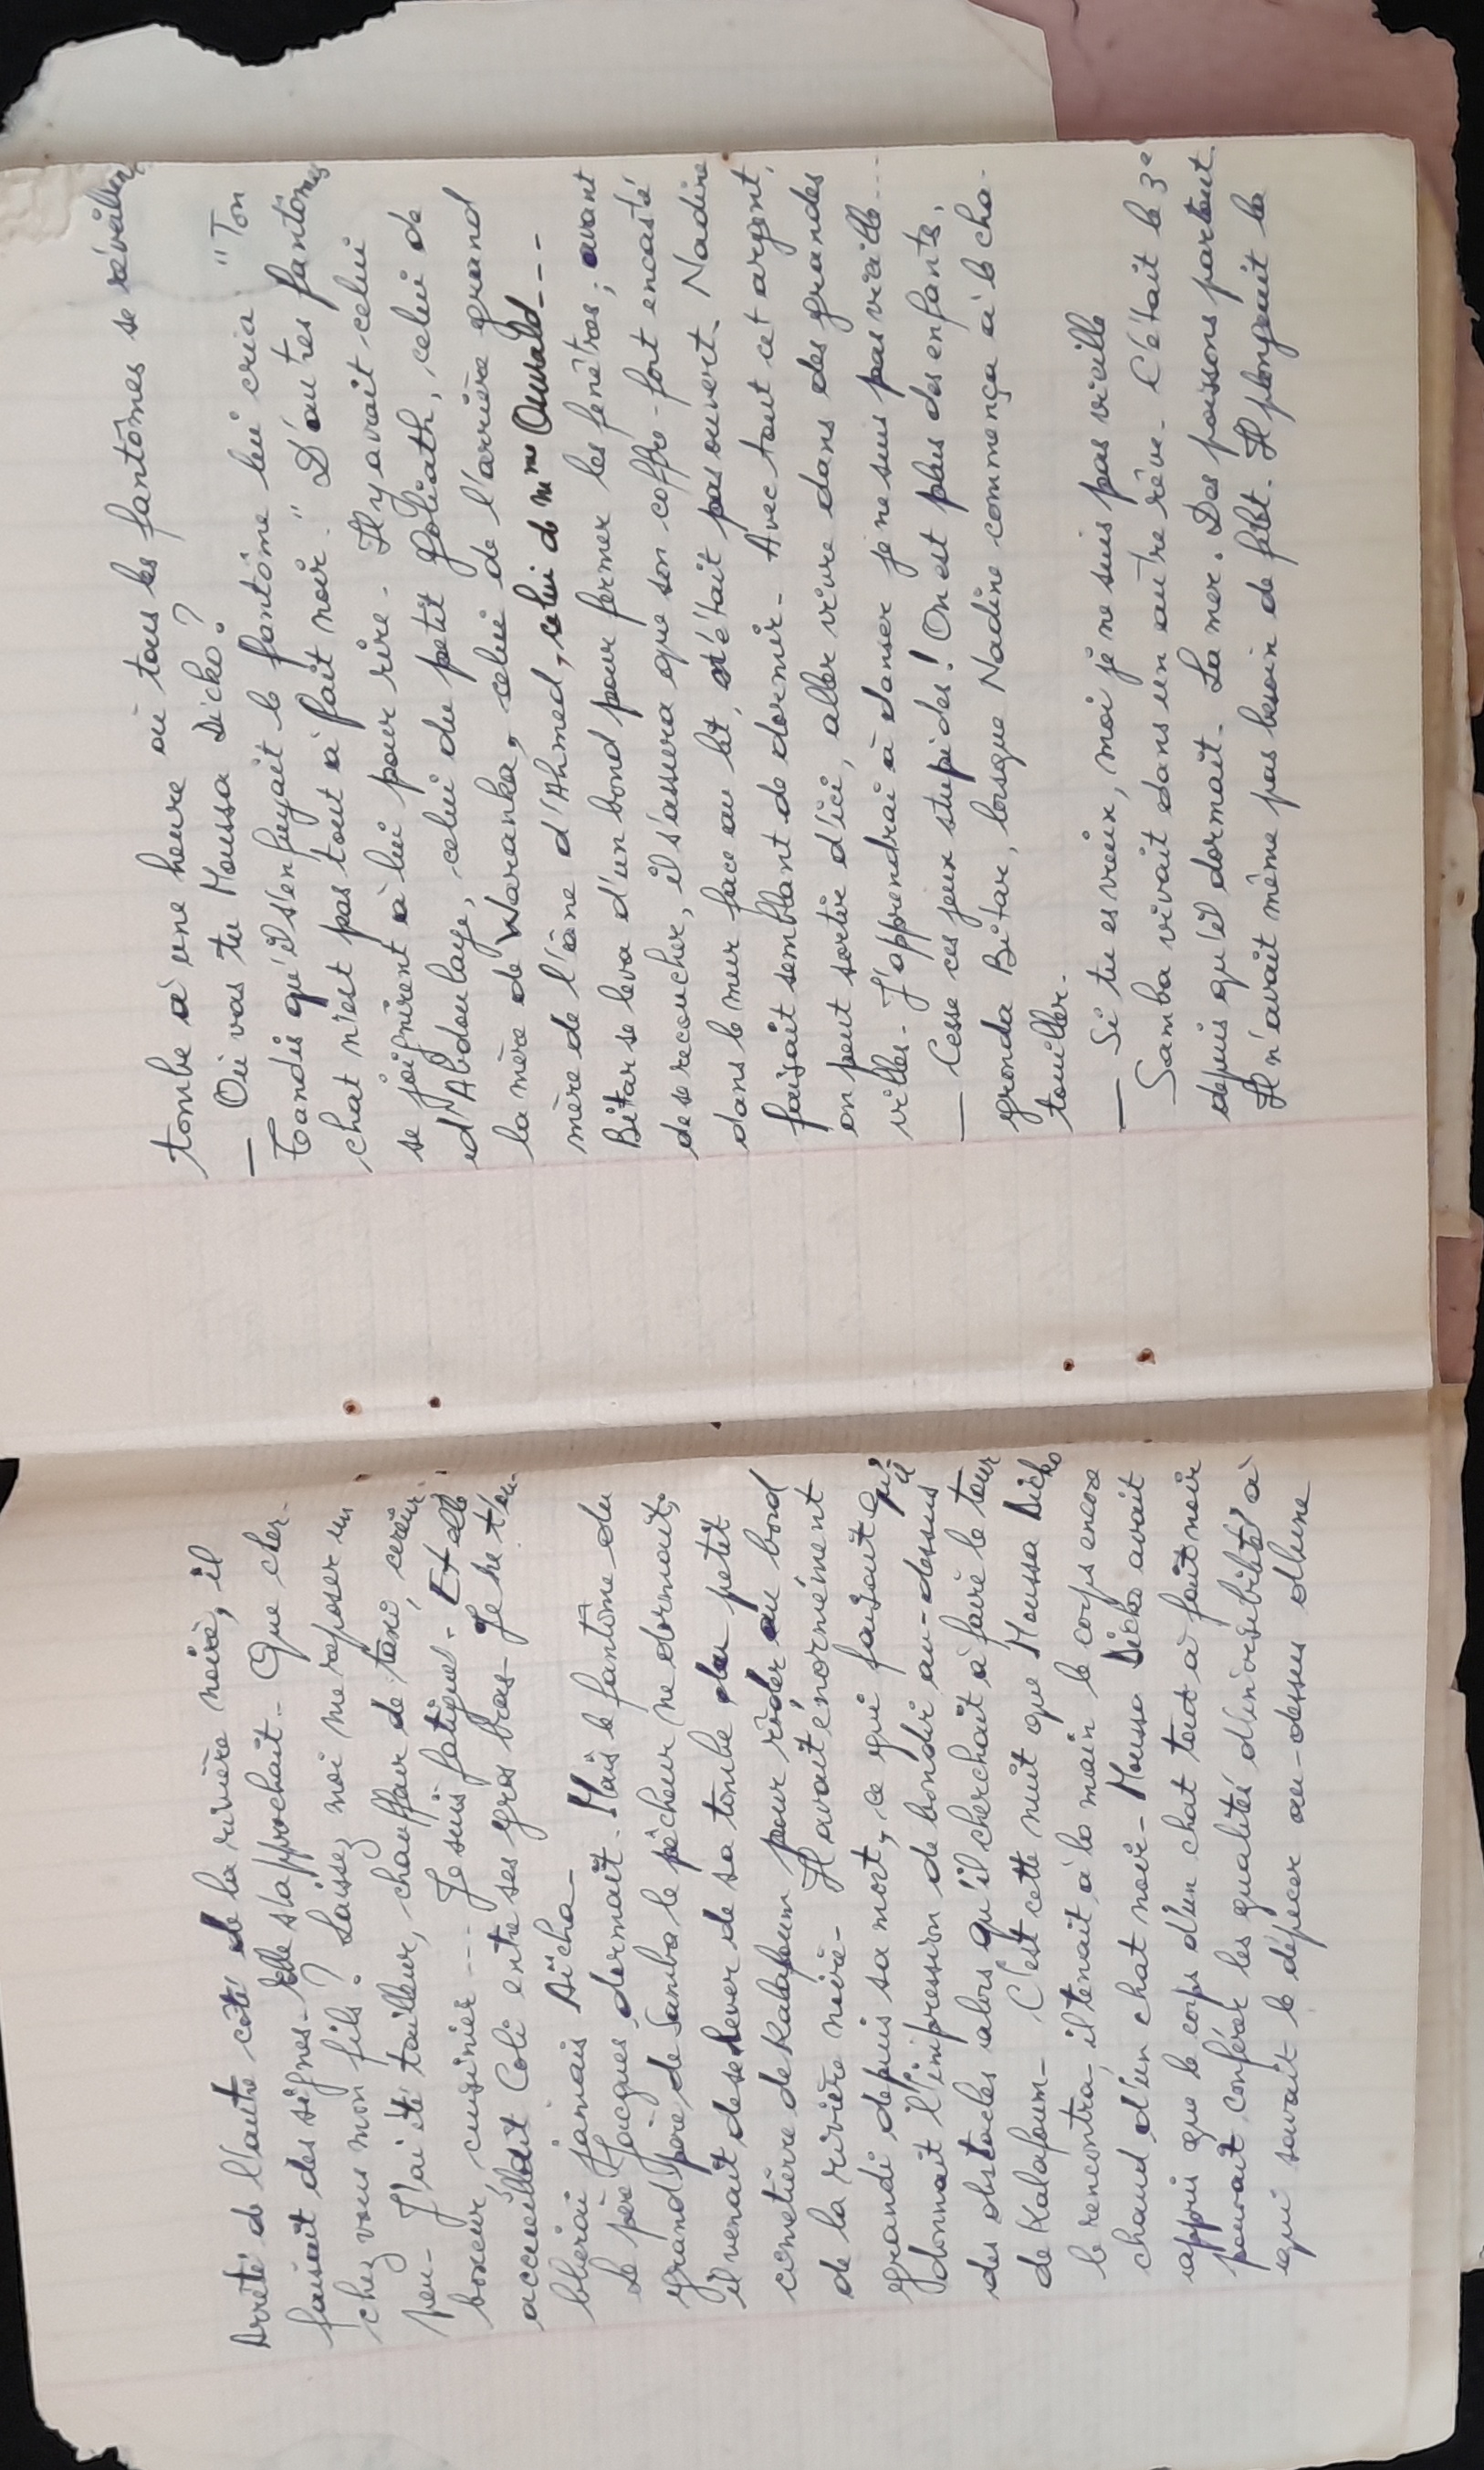 Arrêté de l'autre côté de la rivière noire, il
faisait des signes - Elle s'approchait - Que cher-
chez vous mon fils ? Laissez moi me reposer un
peu - J'ai été tailleur, chauffeur de taxi, cireur,
boxeur, cuisinier --- Je suis fatigué - Et elle
accueillait Coli entre ses gros bras - Je ne t'ou-
blierai jamais Aïcha -
Le père Jacques dormait - Mais le fantôme du
grand père de Samba le pêcheur ne dormait,
il venait de se lever de sa tombe du petit
cimetierre de Kalafoum pour rôder au bord
de la rivière noire - Il avait énormément
grandi depuis sa mort, ce qui faisait qu'il
donnait l'impression de bondir au-dessus
des obstacles alors qu'il cherchait à faire le tour
de Kalafoum - C'est cette nuit que Moussa Dicko
le rencontra, il tenait à la main le corps encore
chaud d'un chat noir - Moussa Dicko avait
appris que le corps d'un chat tout à fait noir
pouvait conférer les qualités d'invisibilité à
qui savait le dépecer au-dessus d'une
tombe à une heure où tous les fantômes se réveillent
— Où vas tu Moussa Dicko ?
Tandis qu'il s'enfuyait le fantôme lui cria "Ton
chat n'est pas tout à fait noir." D'autres fantômes
se joignirent à lui pour rire - Il y avait celui
d'Abdoulaye, celui du petit Goliath, celui de
la mère de Waranka, celui de l'arrière grand
mère de l'âne d'Ahmed, celui d mme Ouvald---
Bitar se leva d'un bond pour fermer les fenêtres ; avant
de se recoucher, il s'assura que son coffre-fort encastré
dans le mur face au lit, n'était pas ouvert. Nadine
faisait semblant de dormir - Avec tout cet argent,
on peut sortir d'ici, aller vivre dans des grandes
villes - J'apprendrai à danser je ne suis pas vieille ...
— Cesse ces jeux stupides ! On est plus des enfants,
gronda Bitar, lorsque Nadine commença à le cha-
touiller.
— Si tu es vieux, moi je ne suis pas vieille
Samba vivait dans un autre rêve - C'était le 3e
depuis qu'il dormait - La mer. Des poissons partout.
Il n'avait même pas besoin de filet. Il plongeait la